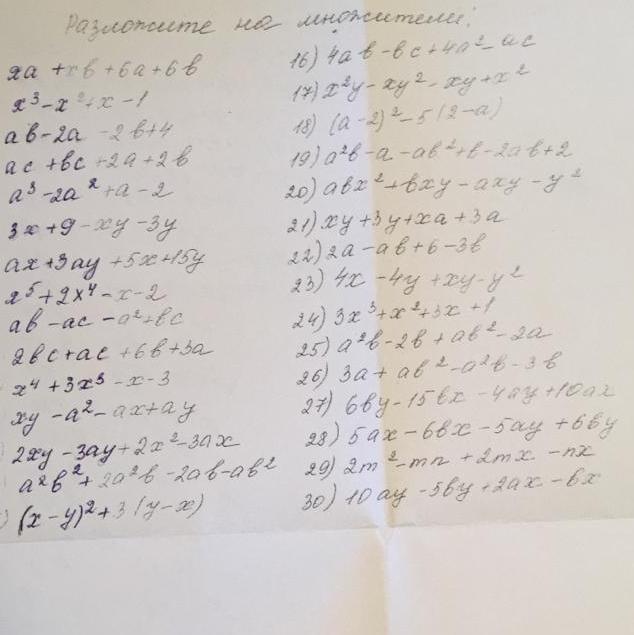 Разложите на множители:
xa + xb + 6a + 6b
x³ - x² + x - 1
ab - 2a - 2b + 4
ac + bc + 2a + 2b
a³ - 2a² + a - 2
3x + 9 - xy - 3y
ax + 3ay + 5x + 15y
x⁵ + 2x⁴ - x - 2
ab - ac - a² + bc
2bc + ac + 6b + 3a
x⁴ + 3x³ - x - 3
xy - a² - ax + ay
2xy - 3ay + 2x² - 3ax
a²b² + 2a²b - 2ab - ab²
) (x - y)² + 3(y - x)
16) 4ab - bc + 4a² - ac
17) x²y - xy² - xy + x²
18) (a - 2)² - 5(2 - a)
19) a²b - a - ab² + b - 2ab + 2
20) abx² + bxy - axy - y²
21) xy + 3y + xa + 3a
22) 2a - ab + 6 - 3b
23) 4x - 4y + xy - y²
24) 3x³ + x² + 3x + 1
25) a²b - 2b + ab² - 2a
26) 3a + ab² - a²b - 3b
27) 6by - 15bx - 4ay + 10ax
28) 5ax - 6bx - 5ay + 6by
29) 2m² - mn + 2mx - nx
30) 10ay - 5by + 2ax - bx